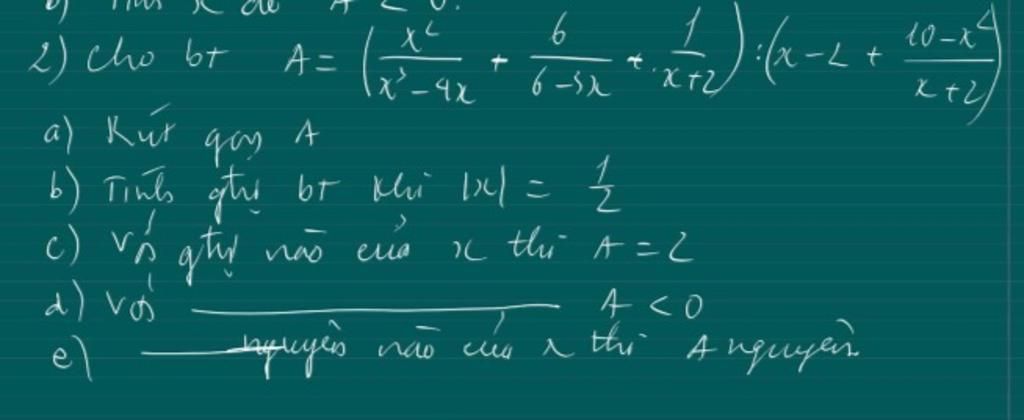 b) Tính x để A < 0.
2) Cho bt A = (x²/(x³ - 4x) + 6/(6 - 3x) + 1/(x+2)) : (x - 2 + (10 - x²)/(x+2))
a) Rút gọn A
b) Tính gtrị bt khi |x| = 1/2
c) Với gtrị nào của x thì A = 2
d) Với ——— A < 0
e) ——— nguyên nào của x thì A nguyên